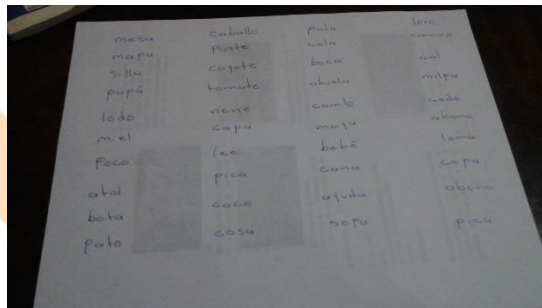 mesa
mapa
silla
papá
lodo
miel
poco
atol
bota
pato
caballo
poste
coyote
tomate
nene
capa
lee
pica
coco
casa
pala
boca
abuela
bebé
ayuda
sopa
camino
milpa
codo
abono
loma
copa
abono
pica